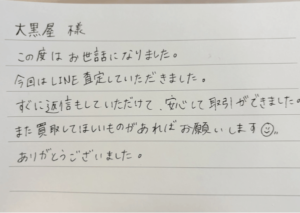 大黒屋 様
この度はお世話になりました。
今回はLINE査定していただきました。
すぐに返信もしていただけて、安心して取引ができました。
また買取してほしいものがあればお願いします☺。
ありがとうございました。